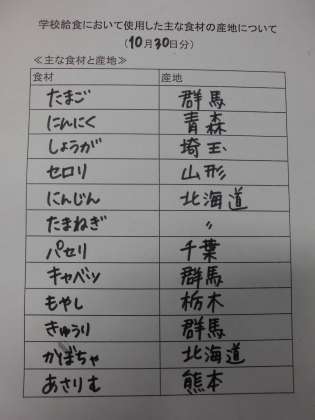 学校給食において使用した主な食材の産地について
(10月30日分)
≪主な食材と産地≫
食材 産地
たまご 群馬
にんにく 青森
しょうが 埼玉
セロリ 山形
にんじん 北海道
たまねぎ 〃
パセリ 千葉
キャベツ 群馬
もやし 栃木
きゅうり 群馬
かぼちゃ 北海道
あさりむ 熊本